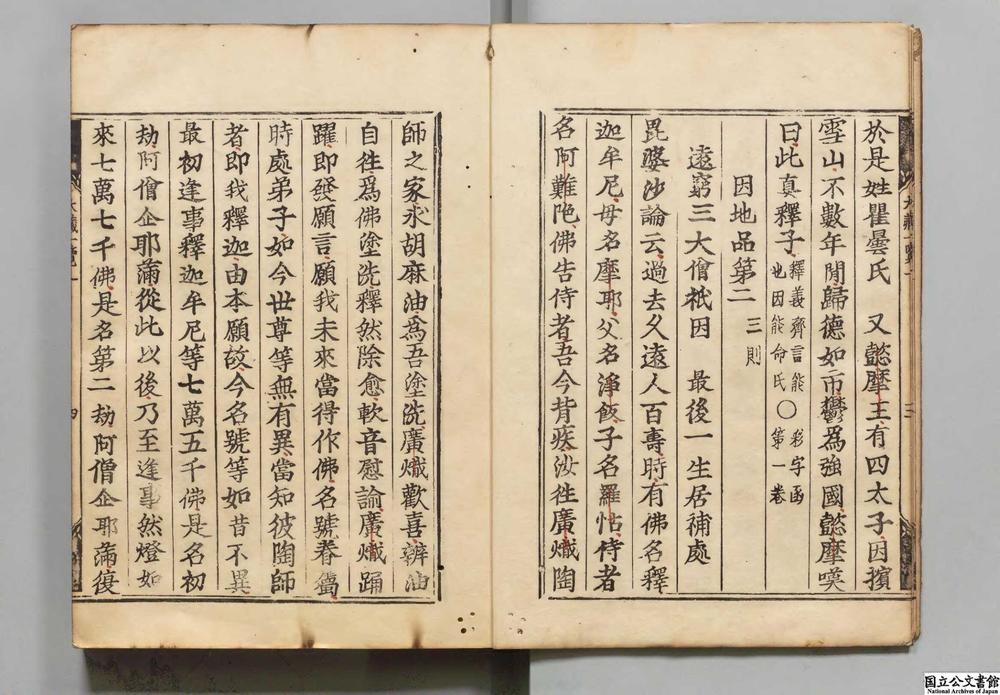 於是姓瞿曇氏　又懿摩王有四太子因擯
雪山不數年閒歸德如市鬱爲強國懿摩嘆
曰此真釋子釋義齊言能也因能命氏○彩字函第一卷
因地品第二　三則
遠窮三大僧祇因　最後一生居補處
毘婆沙論云過去久遠人百壽時有佛名釋
迦牟尼母名摩耶父名淨飯子名羅怙侍者
名阿難陁佛告侍者吾今背疾汝往廣熾陶
大藏一覽一
三
師之家求胡麻油爲吾塗洗廣熾歡喜辦油
自徃爲佛塗洗釋然除愈軟音慰諭廣熾踊
躍即發願言願我未來當得作佛名號眷屬
時處弟子如今世尊等無有異當知彼陶師
者即我釋迦由本願故今名號等如昔不異
最初逢事釋迦牟尼等七萬五千佛是名初
劫阿僧企耶滿從此以後乃至逢事然燈如
來七萬七千佛是名第二劫阿僧企耶滿復
大藏一覽一
四
国立公文書館
National Archives of Japan